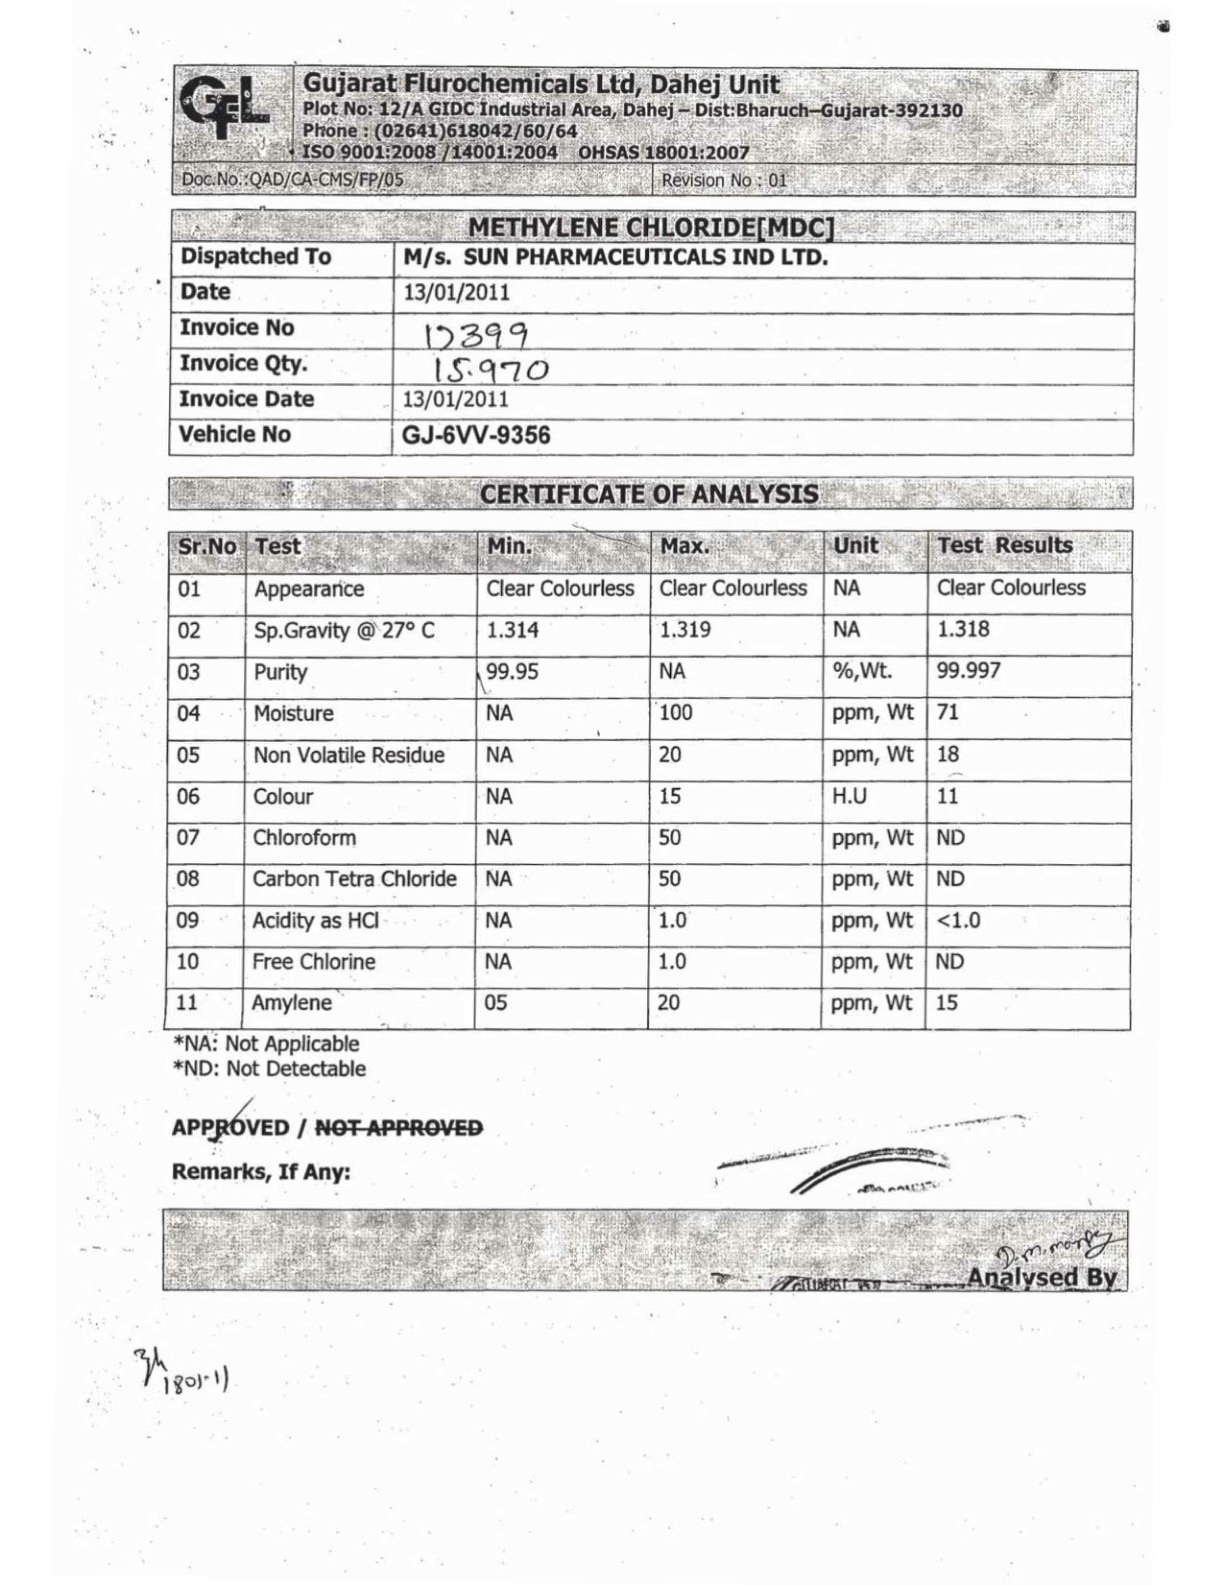 GFL
Gujarat Flurochemicals Ltd, Dahej Unit
Plot No: 12/A GIDC Industrial Area, Dahej – Dist:Bharuch–Gujarat-392130
Phone : (02641)618042/60/64
ISO 9001:2008 /14001:2004 OHSAS 18001:2007
Doc.No.:QAD/CA-CMS/FP/05 Revision No : 01
METHYLENE CHLORIDE[MDC]
Dispatched To M/s. SUN PHARMACEUTICALS IND LTD.
Date 13/01/2011
Invoice No 12399
Invoice Qty. 15.970
Invoice Date 13/01/2011
Vehicle No GJ-6VV-9356
CERTIFICATE OF ANALYSIS
Sr.No Test Min. Max. Unit Test Results
01 Appearance Clear Colourless Clear Colourless NA Clear Colourless
02 Sp.Gravity @ 27° C 1.314 1.319 NA 1.318
03 Purity 99.95 NA %,Wt. 99.997
04 Moisture NA 100 ppm, Wt 71
05 Non Volatile Residue NA 20 ppm, Wt 18
06 Colour NA 15 H.U 11
07 Chloroform NA 50 ppm, Wt ND
08 Carbon Tetra Chloride NA 50 ppm, Wt ND
09 Acidity as HCl NA 1.0 ppm, Wt <1.0
10 Free Chlorine NA 1.0 ppm, Wt ND
11 Amylene 05 20 ppm, Wt 15
*NA: Not Applicable
*ND: Not Detectable
APPROVED / NOT APPROVED
Remarks, If Any:
Analysed By